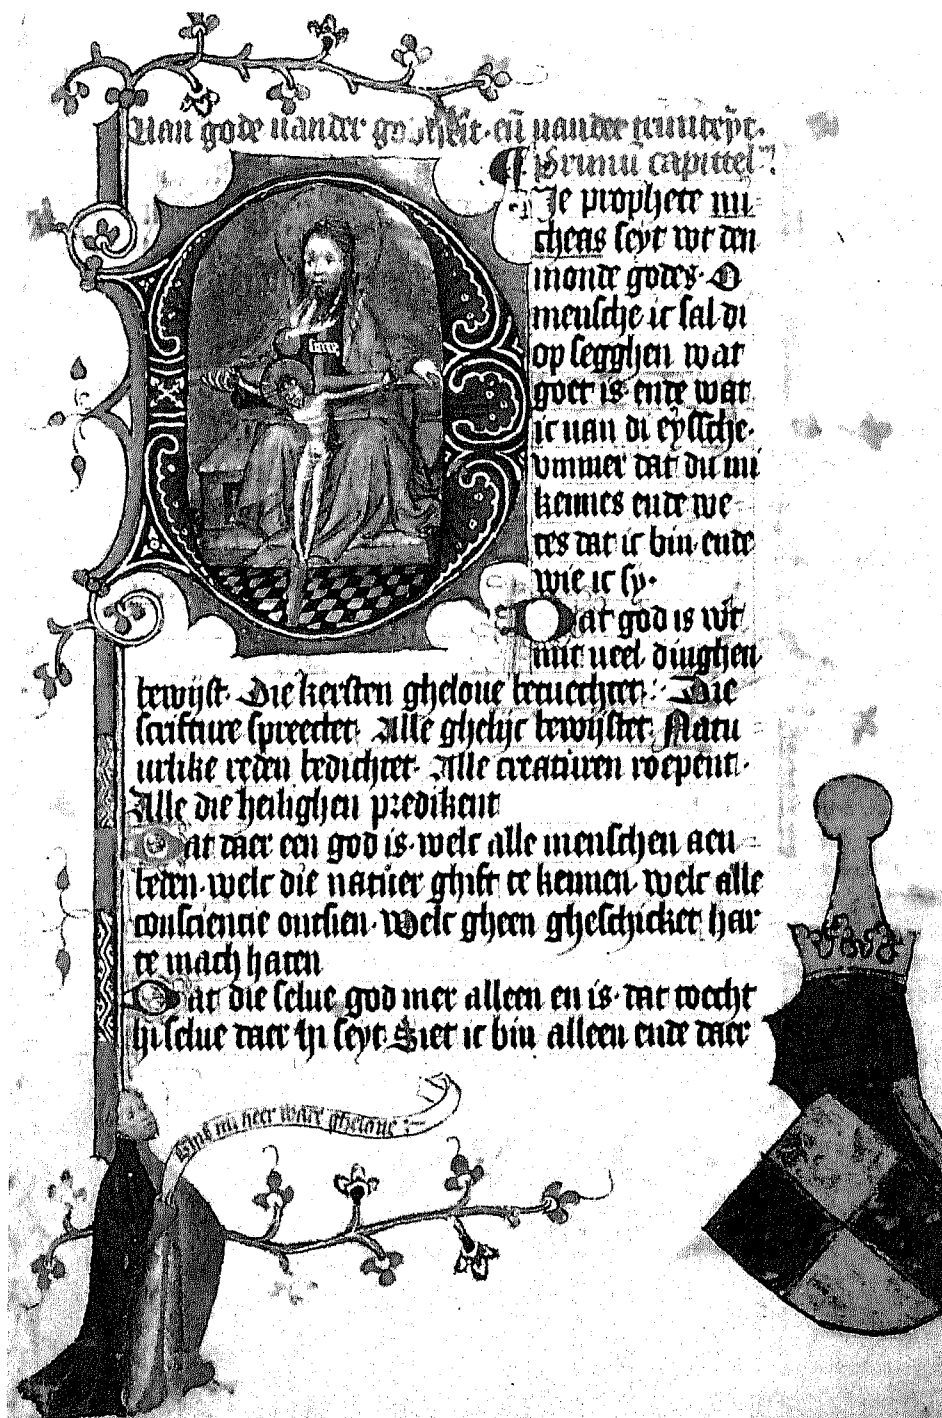 Uan gode uander godheit · en̄ uander triniteÿt.
Primū capittel
Je prophete mi
cheas seyt wt den
monde godes · O
mensche ic sal di
op segghen wat
goet is · ende wat
ic uan di eÿssche ·
vmmer dat du mi
kennes ende we
tes dat ic bin ende
wie ic sy ·
Dat god is wt
mit ueel dinghen
bewijst · Die kersten gheloue betuechtet · Die
scrifture spreectet · Alle ghelijc bewijstet · Natu
urlike reden bedichtet · Alle creaturen roepent ·
Alle die heilighen predikent
Dat daer een god is · welc alle menschen aen
beden · welc die natuer ghift te kennen · welc alle
consciencie ontsien · Welc gheen gheschicket har
te mach haten
Dat die selue god mer alleen en is · dat toecht
hi selue daer hi seyt · Siet ic bin alleen ende daer
mi heer ware gheloue